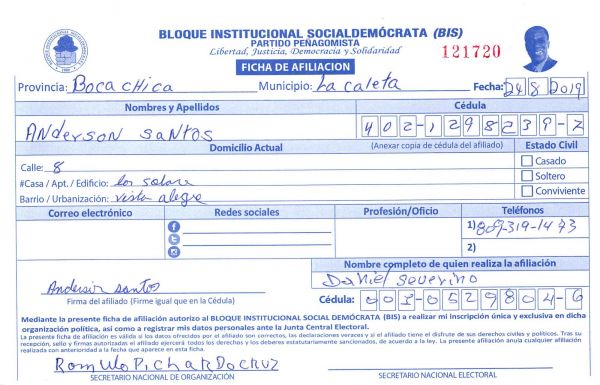 BLOQUE INSTITUCIONAL SOCIALDEMÓCRATA (BIS)
PARTIDO PEÑAGOMISTA
Libertad, Justicia, Democracia y Solidaridad
121720
FICHA DE AFILIACION
Provincia: Boca chica Municipio: La caleta Fecha: 24 8 2019
Nombres y Apellidos Cédula
Anderson santos 402-1298239-7
Domicilio Actual (Anexar copia de cédula del afiliado) Estado Civil
Calle: 8 Casado
#Casa / Apt. / Edificio: los solare Soltero
Barrio / Urbanización: vista alegre Conviviente
Correo electrónico Redes sociales Profesión/Oficio Teléfonos
1) 809-319-1493
2)
Nombre completo de quien realiza la afiliación
Andersir santos Daniel severino
Firma del afiliado (Firme igual que en la Cédula) Cédula: 001-0529804-6
Mediante la presente ficha de afiliación autorizo al BLOQUE INSTITUCIONAL SOCIAL DEMÓCRATA (BIS) a realizar mi inscripción única y exclusiva en dicha
organización política, así como a registrar mis datos personales ante la Junta Central Electoral.
La presente ficha de afiliación es válida si los datos ofrecidos por el afiliado son correctos, las declaraciones veraces y si el afiliado tiene el disfrute de sus derechos civiles y políticos. Tras su
recepción, sello y firmas autorizadas el afiliado ejercerá todos los derechos y los deberes estatutariamente sancionados, de acuerdo a la ley. La presente afiliación anula cualquier afiliación
realizada con anterioridad a la fecha que aparece en esta ficha.
Romulo Pichardo Cruz
SECRETARIO NACIONAL DE ORGANIZACIÓN SECRETARIO NACIONAL ELECTORAL